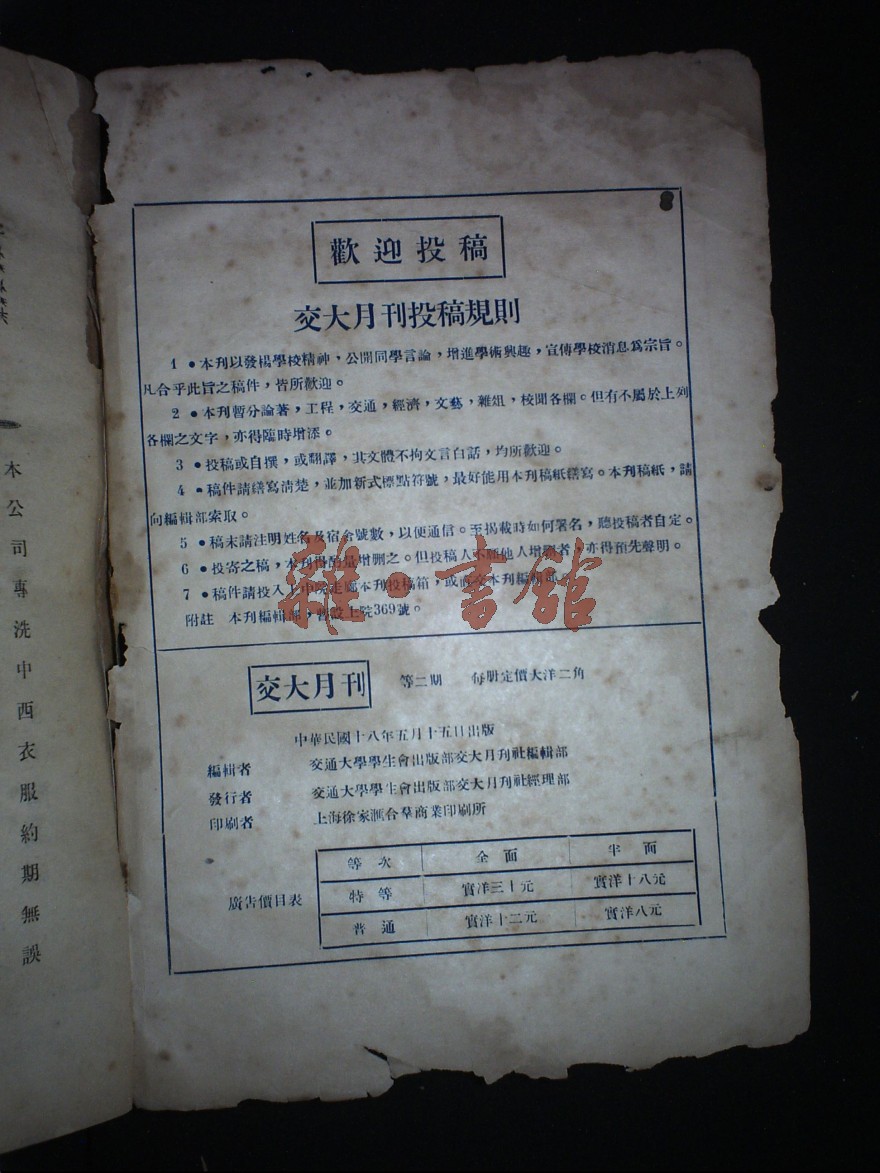 歡迎投稿
交大月刊投稿規則
1 •本刊以發楊學校精神，公開同學言論，增進學術興趣，宣傳學校消息爲宗旨。
凡合乎此旨之稿件，皆所歡迎。
2 •本刊暫分論著，工程，交通，經濟，文藝，雜俎，校聞各欄。但有不屬於上列
各欄之文字，亦得臨時增添。
3 •投稿或自撰，或翻譯，其文體不拘文言白話，均所歡迎。
4 •稿件請繕寫清楚，並加新式標點符號，最好能用本刊稿紙繕寫。本刊稿紙，請
向編輯部索取。
5 •稿末請注明姓名及宿舍號數，以便通信。至揭載時如何署名，聽投稿者自定。
6 •投寄之稿，本刊得酌量增删之。但投稿人不願他人增删者，亦得預先聲明。
7 •稿件請投入上中院走廊本刊投稿箱，或直交本刊編輯部。
附註 本刊編輯部，暫設上院369號。
雜·書館
交大月刊 第二期 每册定價大洋二角
中華民國十八年五月十五日出版
編輯者 交通大學學生會出版部交大月刊社編輯部
發行者 交通大學學生會出版部交大月刊社經理部
印刷者 上海徐家匯合羣商業印刷所
廣告價目表
等次 全面 半面
特等 實洋三十元 實洋十八元
普通 實洋十二元 實洋八元
本公司專洗中西衣服約期無誤